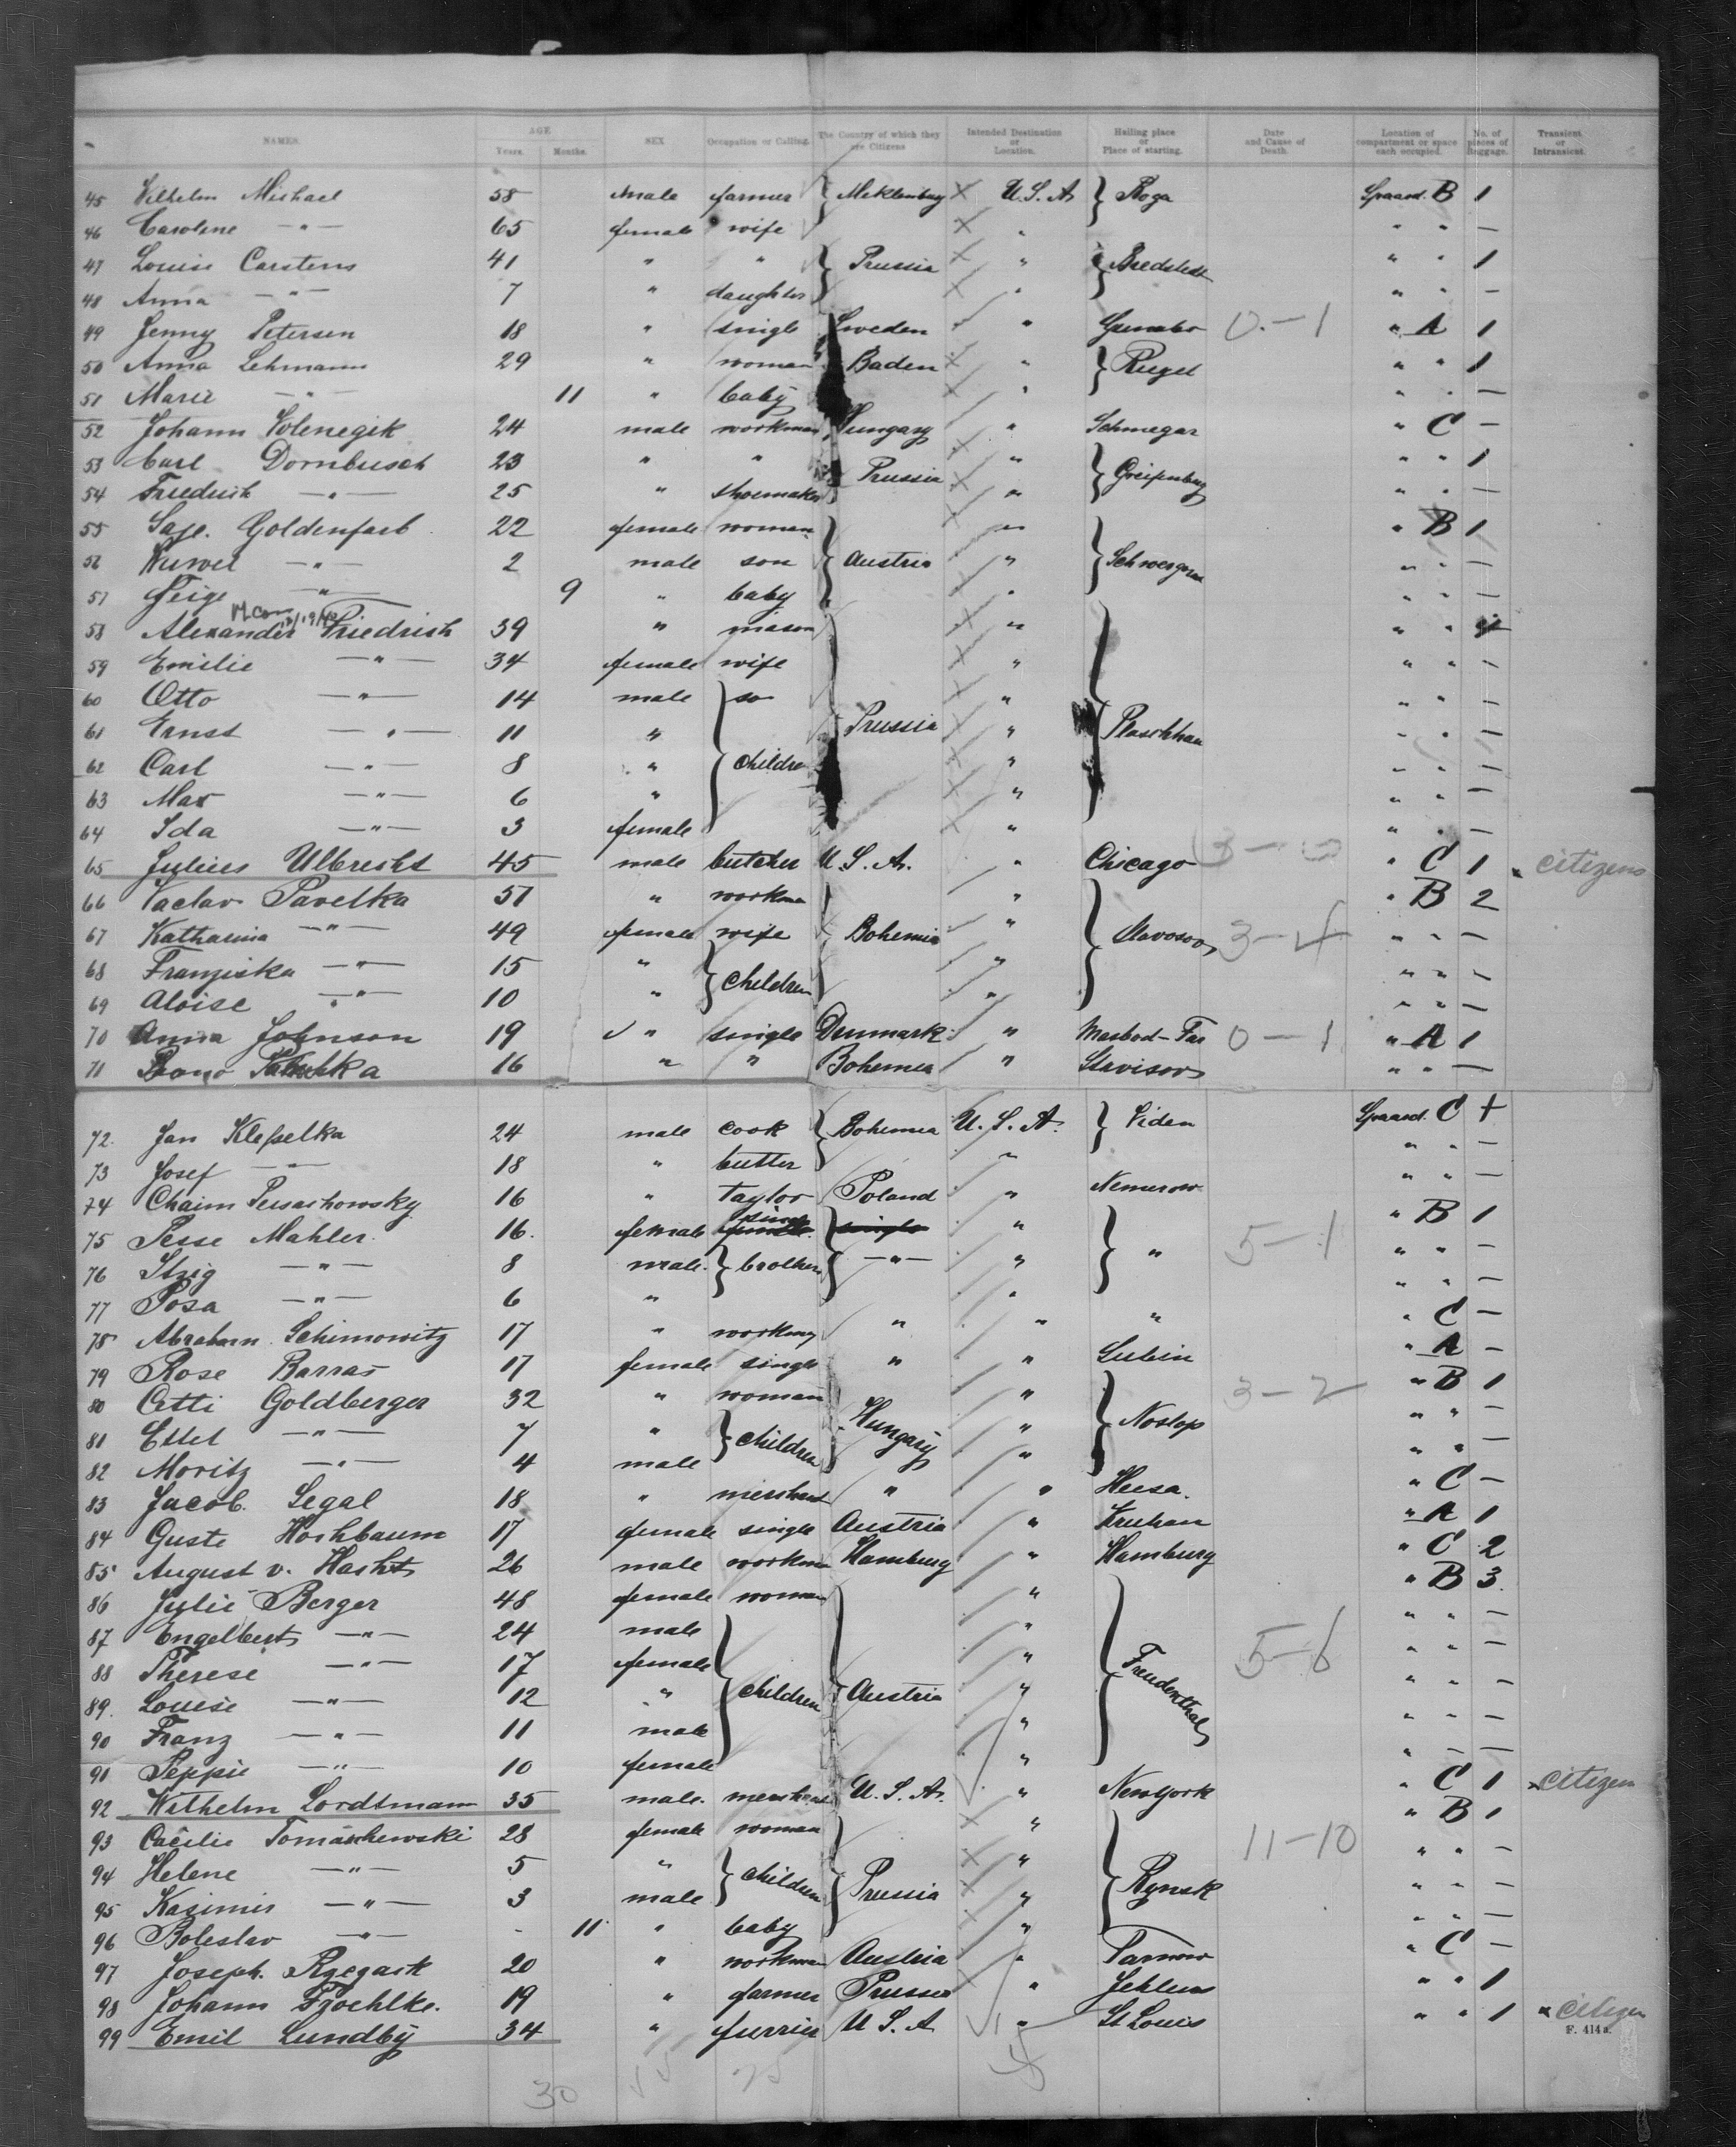 NAMES. AGE Years. Months. SEX Occupation or Calling. The Country of which they are Citizens Intended Destination or Location. Hailing place or Place of starting. Date and Cause of Death. Location of compartment or space each occupied. No. of pieces of Baggage. Transient or Intransient.
45 Wilhelm Michael 58 male farmer } Meklenburg X U.S.A. } Roga Spaand. B 1
46 Caroline —"— 65 female wife X " " " —
47 Louise Carstens 41 " " } Prussia X " } Bredstedt " " 1
48 Anna —"— 7 " daughter X " " " —
49 Jenny Petersen 18 " single Sweden " " 0-1 " A 1
50 Anna Lehmann 29 " woman Baden X " } Riegel " " 1
51 Marie —"— 11 " baby X " " " —
52 Johann 24 male workman Hungary " Schmegar " C —
53 Carl Dornbusch 23 " " Prussia X " } Greifenberg " " 1
54 Friedrich —"— 25 " shoemaker X " " " —
55 Goldenfarb 22 female woman X " " B 1
56 —"— 2 male son } Austria " } " " —
57 Feige —"— 9 " baby " " " —
58 Alexander Friedrich 39 " mason X " " "
59 Emilie —"— 34 female wife X " " " —
60 Otto —"— 14 male so X " " " —
61 Ernst —"— 11 " } Prussia X " } " " —
62 Carl —"— 8 " } Childre X " " " —
63 Max —"— 6 " X " " " —
64 Ida —"— 3 female X " " " —
65 Julius Ulbricht 45 male butcher U.S.A. " Chicago " C 1 x citizens
66 Vaclav Pavelka 51 " workman " " B 2
67 Katharina —"— 49 female wife } Bohemia " } 3-4 " " —
68 Franziska —"— 15 " } children " " " —
69 Aloise —"— 10 " " " " —
70 Anna Johnson 19 " single Denmark " 0-1 " A 1
71 16 " " Bohemia " " " —
72. Jan 24 male cook } Bohemia U.S.A. } Viden Spaand. C +
73 Josef —"— 18 " " " " —
74 Chaim 16 " taylor Poland " Nemerow " " —
75 Pesse Mahler 16. female single } " } 5-1 " B 1
76 —"— 8 male. } brothers —"— " " " " —
77 Posa —"— 6 " " " " —
78 Abraham Schimowitz 17 " " " " " C —
79 Rose Barras 17 female single " " Lubin " A —
80 Goldberger 32 " woman " 3-2 " B 1
81 Ettel —"— 7 " } children } Hungary " } " " —
82 Moritz —"— 4 male " " " —
83 Jacob. Segal 18 " merchant " " " C —
84 Guste 17 female single Austria " " A 1
85 August v. 26 male workman Hamburg " Hamburg " C 2
86 Julie Berger 48 female woman " " B 3.
87 Engelbert —"— 24 male " 5-6 " " —
88 Therese —"— 17 female " } Freudenthal " " —
89. Louise —"— 12 " } children } Austria " " " —
90 Franz —"— 11 male " " " —
91 Peppie —"— 10 female " " — —
92 Wilhelm Lordtmann 35 male. merchant U.S.A. " Newyork " C 1 x citizen
93 Cacilie Tomaschewski 28 female woman X " 11-10 " B 1
94 Helene —"— 5 " } children } Prussia X " } Rynsk " " —
95 Kasimir —"— 3 male X " " " —
96 Boleslav —"— - 11 " baby X " " " —
97 Joseph. 20 " workman Austria " Tarnow " C —
98 Johann 19 " farmer Prussia X " " " 1
99 Emil Lundby 34 " furrier U.S.A " St Louis " " 1 x citizen
F. 414a.
30